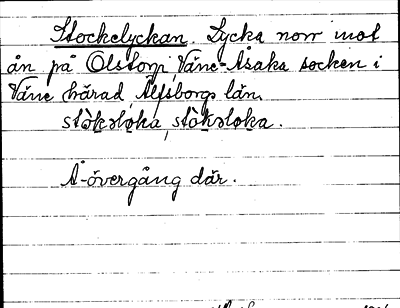 Stockelyckan. Lycka norr mot
ån på Olstorp, Väne-Åsaka socken i
Väne härad, Älfsborgs län.
stòkəlo̤ka, stòkəlo̤ka.
Å-övergång där.